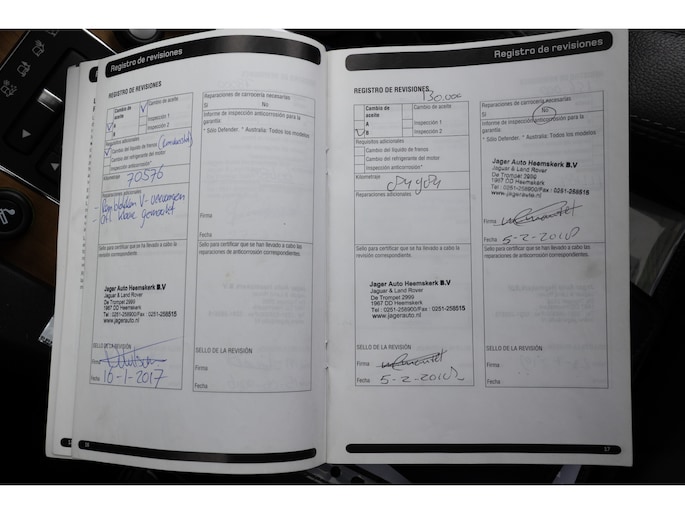 Registro de revisiones
REGISTRO DE REVISIONES
Cambio de aceite
Cambio de aceite
A
Inspección 1
B
Inspección 2
Requisitos adicionales
Cambio del líquido de frenos
Cambio del refrigerante del motor
Inspección anticorrosión*
Kilometraje
70576
Reparaciones adicionales
Remblokken V-vervangen
klaar gemaakt
Sello para certificar que se ha llevado a cabo la
revisión correspondiente.
Jager Auto Heemskerk B.V
Jaguar & Land Rover
De Trompet 2999
1967 DD Heemskerk
Tel : 0251-258900/Fax : 0251-258515
www.jagerauto.nl
SELLO DE LA REVISIÓN
Firma
Fecha 16-1-2017
Reparaciones de carrocería necesarias
Sí No
Informe de inspección anticorrosión para la
garantía
* Sólo Defender. * Australia: Todos los modelos
Firma
Fecha
Sello para certificar que se han llevado a cabo las
reparaciones de anticorrosión correspondientes.
SELLO DE LA REVISIÓN
Firma
Fecha
36
Registro de revisiones
REGISTRO DE REVISIONES
130.000
Cambio de aceite
Cambio de aceite
A
Inspección 1
B
Inspección 2
Requisitos adicionales
Cambio del líquido de frenos
Cambio del refrigerante del motor
Inspección anticorrosión*
Kilometraje
Reparaciones adicionales
Sello para certificar que se ha llevado a cabo la
revisión correspondiente.
Jager Auto Heemskerk B.V
Jaguar & Land Rover
De Trompet 2999
1967 DD Heemskerk
Tel : 0251-258900/Fax : 0251-258515
www.jagerauto.nl
SELLO DE LA REVISIÓN
Firma
Fecha 5-2-2018
Reparaciones de carrocería necesarias
Sí No
Informe de inspección anticorrosión para la
garantía
* Sólo Defender. * Australia: Todos los modelos
Jager Auto Heemskerk B.V
Jaguar & Land Rover
De Trompet 2999
1967 DD Heemskerk
Tel : 0251-258900/Fax : 0251-258515
www.jagerauto.nl
Firma
Fecha 5-2-2018
Sello para certificar que se han llevado a cabo las
reparaciones de anticorrosión correspondientes.
SELLO DE LA REVISIÓN
Firma
Fecha
37